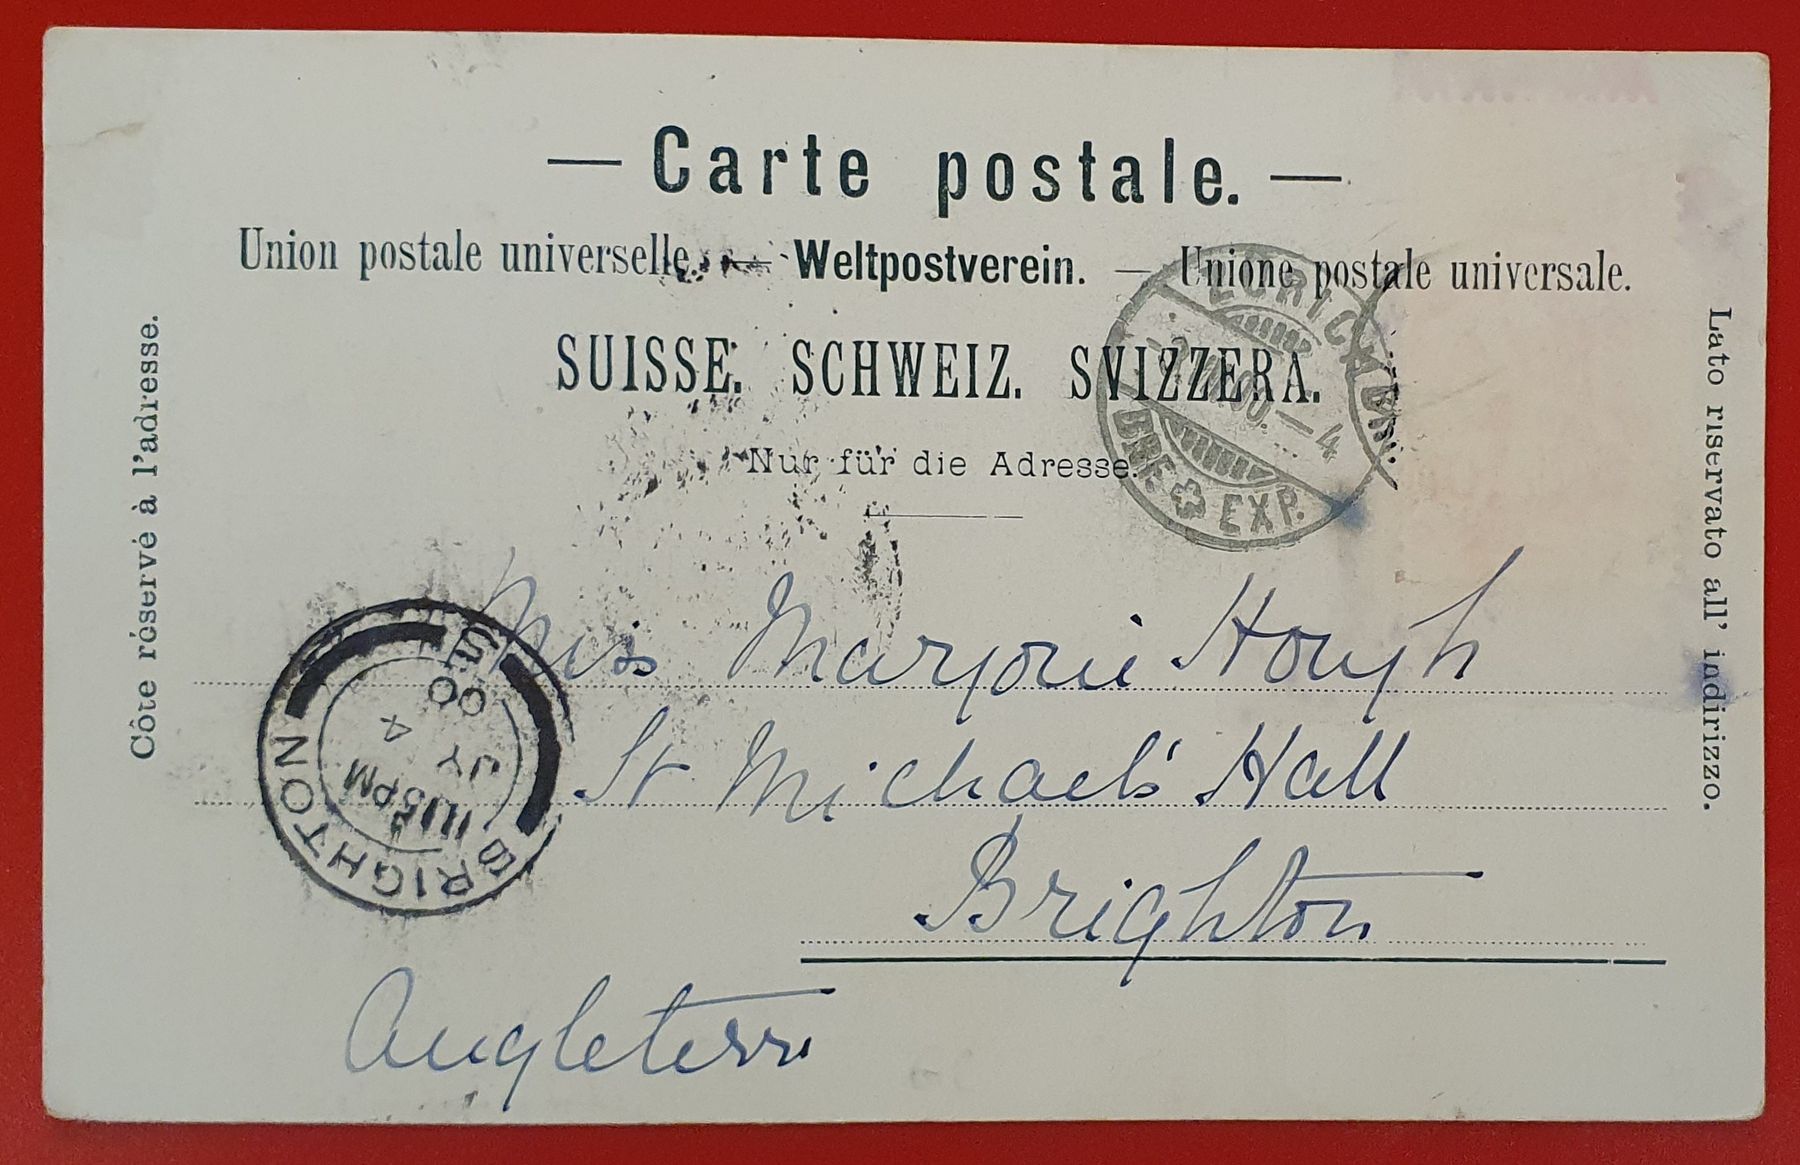 — Carte postale. —
Union postale universelle. — Weltpostverein. — Unione postale universale.
SUISSE. SCHWEIZ. SVIZZERA.
Nur für die Adresse.
Côte réservé à l'adresse.
Lato riservato all' indirizzo.
ZÜRICH
BRF. EXP.
–4
Miss Marjorie Hough
St Michael's Hall
Brighton
Angleterre
BRIGHTON
1115PM
JY 4
00